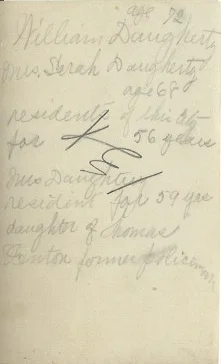 age 72
William Daugherty
Mrs. Sarah Daugherty
age 68
residents of this city
for 56 years
Mrs Daugherty
resident for 59 yrs
daughter of Thomas
Fenton former policeman